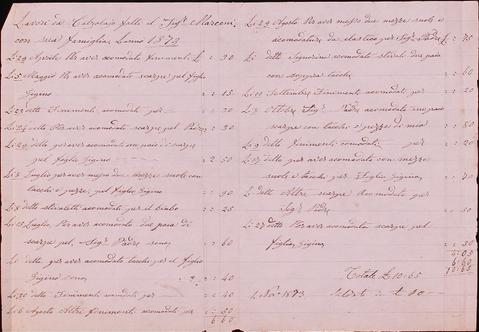 Lavori da Calzolajo fatti il Sigr. Marconi,
con sua famiglia. Anno 1873
Li 29 Aprile Per aver acomodato finimenti £ : 30
Li 5 Maggio Per aver acomodato scarpe pel figlio
Gigino = : 15
Li 22 detto Finimenti acomodati per = : 30
Li 24 detto Per aver acomodato scarpe pel Padre = : 30
Li 29 detto per aver acomodato un paio di scarpe
pel figlio Gigino = 2 : 50
Li 3 Luglio per aver messo due mezze suole con
tacchi e pezze, pel figlio Gigino = : 90
Li detto stivaletti acomodati per il bimbo = : 25
Li 15 Luglio, Per aver acomodato due paia di
scarpe pel, Sigr. Padre sono, = : 60
Li detto per aver acomodato tacchi per il figlio
Gigino sono, = : 40
Li 30 detto Finimenti acomodati per = : 40
Li 6 Agosto Altri finimenti acomodati per = : 50
6 : 60
Li 29 Agosto Per aver messo due mezze suole e
acomodatura da elastico per Sigr. Padre £ : 75
Li detto Signorina acomodato stivali due paia
con tacchi = : 60
Li 11 Settembre Finimenti acomodati per = : 20
Li Ottobre Sigr. Padre acomodato un paio
scarpe con tacchi e pezze di mia = : 80
Li 9 detto finimenti comodati, per = : 20
Li 17 detto per aver acomodato con mezze
suole e tacchi per Figlio Gigino, = : 70
Li detto Altre scarpe Acomodate per
Sigr. Padre = : 50
Li 27 detto Per aver acomodato scarpe pel
figlio, Gigino, = : 30
4:05
6:60
Totale £ 10:65
Li Nov. 1873 £ 10